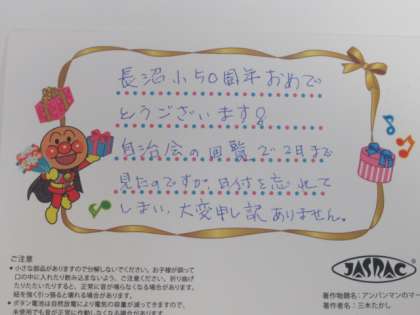 長沼小50周年おめで
とうございます!
自治会の回覧で2日まで
見たのですが、日付を忘れて
しまい、大変申し訳ありません。
ご注意
●小さな部品がありますので分解しないでください。お子様が誤って
口の中に入れたり飲み込まないよう、ご注意ください。折り曲げ
たりたたいたりすると、正常に音が鳴らなくなる場合があります。
紙を強く引っ張ると壊れる場合があります。
●ボタン電池は自然放電により電気の容量が減ってきますので、
未使用でも音が正常に作動しなくなる場合があります。
JASRAC
著作物題名:アンパンマンのマー
著作者名:三木たかし